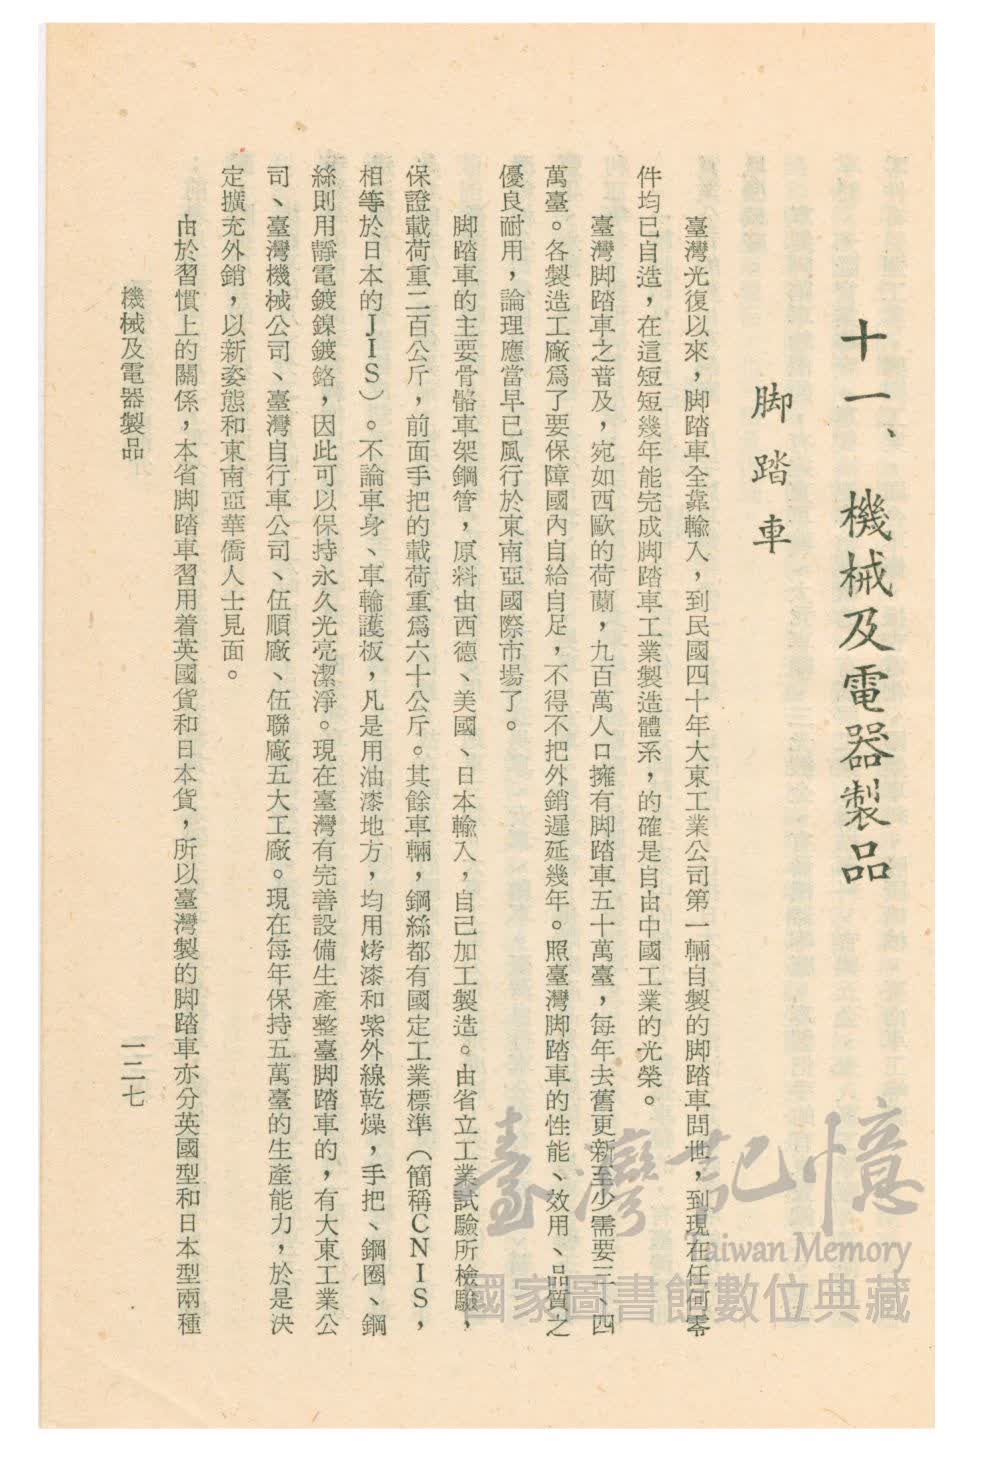 十一、機械及電器製品
脚踏車
臺灣光復以來，脚踏車全靠輸入，到民國四十年大東工業公司第一輛自製的脚踏車問世，到現在任何零
件均已自造，在這短短幾年能完成脚踏車工業製造體系，的確是自由中國工業的光榮。
臺灣脚踏車之普及，宛如西歐的荷蘭，九百萬人口擁有脚踏車五十萬臺，每年去舊更新至少需要三、四
萬臺。各製造工廠爲了要保障國內自給自足，不得不把外銷遲延幾年。照臺灣脚踏車的性能、效用、品質之
優良耐用，論理應當早已風行於東南亞國際市場了。
脚踏車的主要骨骼車架鋼管，原料由西德、美國、日本輸入，自己加工製造。由省立工業試驗所檢驗，
保證載荷重二百公斤，前面手把的載荷重爲六十公斤。其餘車輛，鋼絲都有國定工業標準（簡稱CNIS，
相等於日本的JIS）。不論車身、車輪護板，凡是用油漆地方，均用烤漆和紫外線乾燥，手把、鋼圈、鋼
絲則用靜電鍍鎳鍍鉻，因此可以保持永久光亮潔淨。現在臺灣有完善設備生產整臺脚踏車的，有大東工業公
司、臺灣機械公司、臺灣自行車公司、伍順廠、伍聯廠五大工廠。現在每年保持五萬臺的生產能力，於是決
定擴充外銷，以新姿態和東南亞華僑人士見面。
由於習慣上的關係，本省脚踏車習用着英國貨和日本貨，所以臺灣製的脚踏車亦分英國型和日本型兩種
機械及電器製品
一二七
臺灣記憶
Taiwan Memory
國家圖書館數位典藏